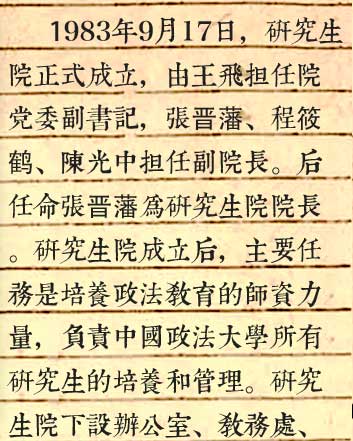 1983年9月17日，研究生
院正式成立，由王飛担任院
党委副書記，張晋藩、程筱
鹤、陳光中担任副院長。后
任命張晋藩為研究生院院長
。研究生院成立后，主要任
務是培養政法教育的師資力
量，負責中國政法大學所有
研究生的培養和管理。研究
生院下設辦公室、教務處、